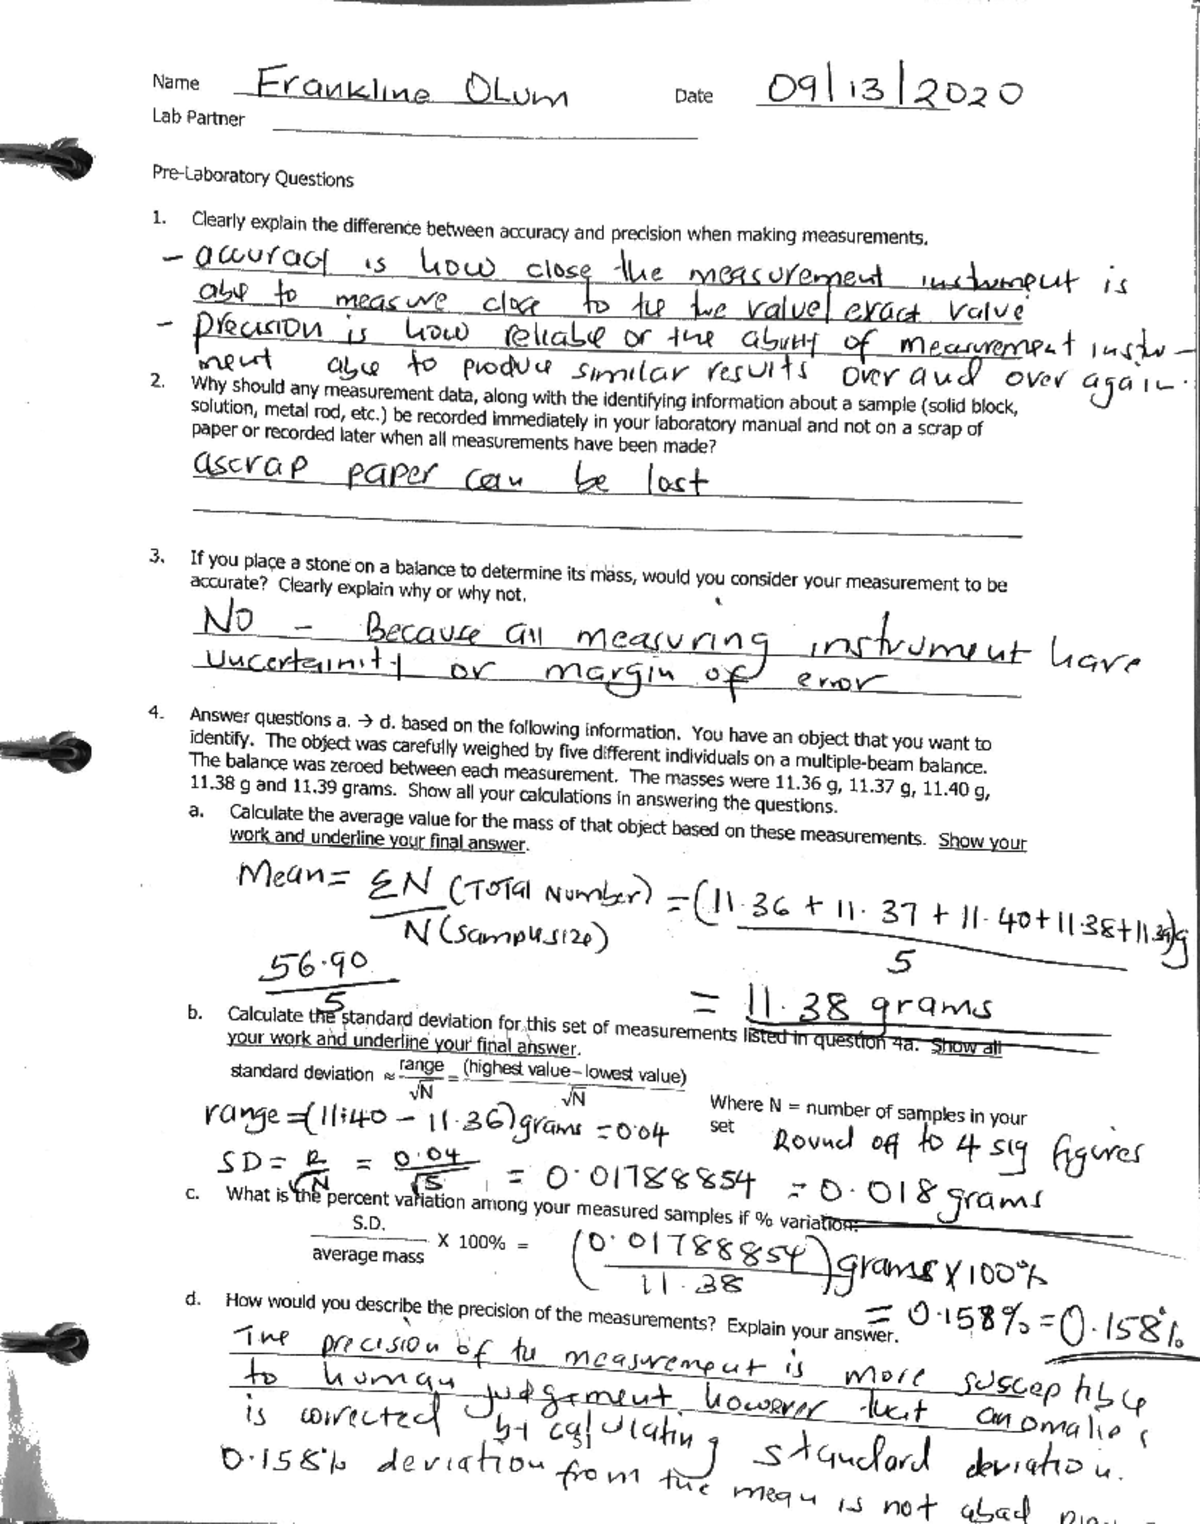 Name Frankline Olum Date 09/13/2020
Lab Partner
Pre-Laboratory Questions
1. Clearly explain the difference between accuracy and precision when making measurements.
- accuracy is how close the measurement instrument is
able to measure close to the true value/exact value
- precision is how reliable or the ability of measurement instru-
ment able to produce similar results over and over again.
2. Why should any measurement data, along with the identifying information about a sample (solid block,
solution, metal rod, etc.) be recorded immediately in your laboratory manual and not on a scrap of
paper or recorded later when all measurements have been made?
ascrap paper can be lost
3. If you place a stone on a balance to determine its mass, would you consider your measurement to be
accurate? Clearly explain why or why not.
No - Because all measuring instrument have
uncertainity or margin of error
4. Answer questions a. → d. based on the following information. You have an object that you want to
identify. The object was carefully weighed by five different individuals on a multiple-beam balance.
The balance was zeroed between each measurement. The masses were 11.36 g, 11.37 g, 11.40 g,
11.38 g and 11.39 grams. Show all your calculations in answering the questions.
a. Calculate the average value for the mass of that object based on these measurements. Show your
work and underline your final answer.
Mean = ΣN (Total Number) = (11.36 + 11.37 + 11.40 + 11.38 + 11.39)g
N (sample size) 5
56.90
5 = 11.38 grams
b. Calculate the standard deviation for this set of measurements listed in question 4a. Show all
your work and underline your final answer.
standard deviation ≈ range = (highest value – lowest value)
√N √N
Where N = number of samples in your
set
range = (11.40 - 11.36) grams = 0.04 Round off to 4 sig figures
SD = R = 0.04 = 0.01788854 = 0.018 grams
√N √5
c. What is the percent variation among your measured samples if % variation:
S.D. X 100% = (0.01788854) grams X 100%
average mass 11.38
= 0.158% = 0.158%
d. How would you describe the precision of the measurements? Explain your answer.
The precision of the measurement is more susceptible
to human judgement however that anomalies
is corrected by calculating standard deviation.
0.158% deviation from the mean is not abad